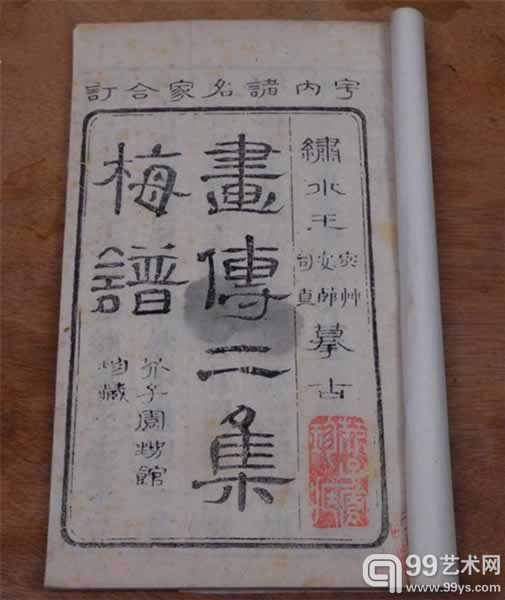 宇内諸名家合訂
繡水王
宓艸
安節
司直
摹古
畫傳二集
梅譜
芥子園甥館
珍藏
99艺术网
www.99ys.com